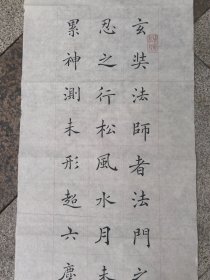 玄奘法師者法門之
忍之行松風水月未
累神測未形超六塵